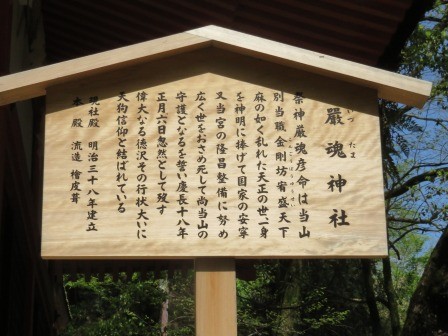 厳魂神社
いつたま
祭神厳魂彦命は当山
別当職金剛坊宥盛天下
麻の如く乱れた天正の世、一身
を神明に捧げて国家の安寧
又当宮の隆昌整備に努め
広く世をおさめ死して尚当山の
守護となるを誓い慶長十八年
正月六日忽然として歿す
偉大なる徳沢その行状大いに
天狗信仰と結ばれている
現社殿 明治三十八年建立
本殿 流造 檜皮葺